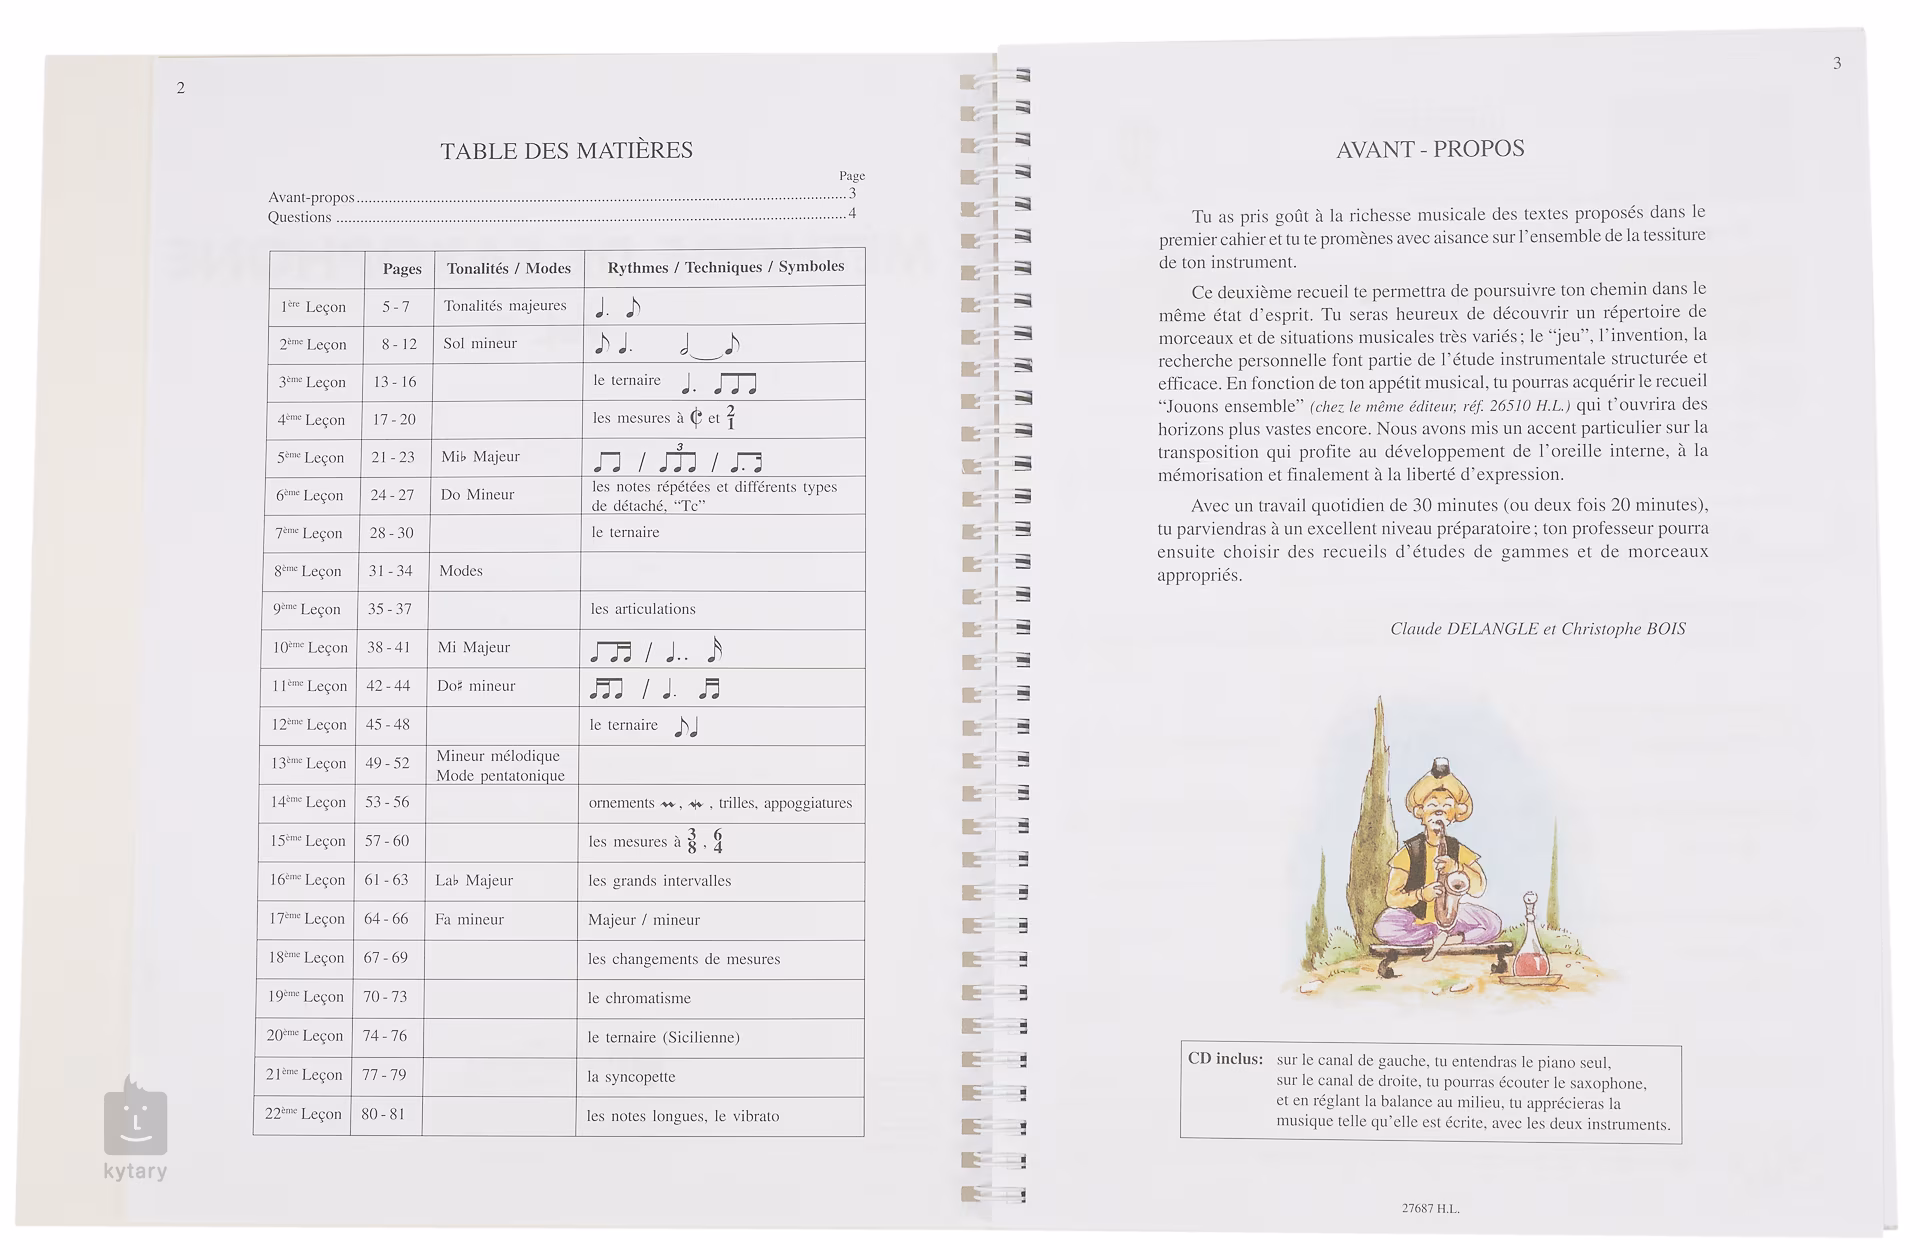 2
TABLE DES MATIÈRES
Page
Avant-propos........................................3
Questions ........................................4
Pages Tonalités / Modes Rythmes / Techniques / Symboles
1ère Leçon 5 - 7 Tonalités majeures
2ème Leçon 8 - 12 Sol mineur
3ème Leçon 13 - 16 le ternaire
4ème Leçon 17 - 20 les mesures à 𝄵 et 2/1
5ème Leçon 21 - 23 Mi♭ Majeur / 3 /
6ème Leçon 24 - 27 Do Mineur les notes répétées et différents types
de détaché, “Tc”
7ème Leçon 28 - 30 le ternaire
8ème Leçon 31 - 34 Modes
9ème Leçon 35 - 37 les articulations
10ème Leçon 38 - 41 Mi Majeur /
11ème Leçon 42 - 44 Do♯ mineur /
12ème Leçon 45 - 48 le ternaire
13ème Leçon 49 - 52 Mineur mélodique
Mode pentatonique
14ème Leçon 53 - 56 ornements , , trilles, appoggiatures
15ème Leçon 57 - 60 les mesures à 3/8 , 6/4
16ème Leçon 61 - 63 La♭ Majeur les grands intervalles
17ème Leçon 64 - 66 Fa mineur Majeur / mineur
18ème Leçon 67 - 69 les changements de mesures
19ème Leçon 70 - 73 le chromatisme
20ème Leçon 74 - 76 le ternaire (Sicilienne)
21ème Leçon 77 - 79 la syncopette
22ème Leçon 80 - 81 les notes longues, le vibrato
kytary
3
AVANT - PROPOS
Tu as pris goût à la richesse musicale des textes proposés dans le
premier cahier et tu te promènes avec aisance sur l’ensemble de la tessiture
de ton instrument.
Ce deuxième recueil te permettra de poursuivre ton chemin dans le
même état d’esprit. Tu seras heureux de découvrir un répertoire de
morceaux et de situations musicales très variés ; le “jeu”, l’invention, la
recherche personnelle font partie de l’étude instrumentale structurée et
efficace. En fonction de ton appétit musical, tu pourras acquérir le recueil
“Jouons ensemble” (chez le même éditeur, réf. 26510 H.L.) qui t’ouvrira des
horizons plus vastes encore. Nous avons mis un accent particulier sur la
transposition qui profite au développement de l’oreille interne, à la
mémorisation et finalement à la liberté d’expression.
Avec un travail quotidien de 30 minutes (ou deux fois 20 minutes),
tu parviendras à un excellent niveau préparatoire ; ton professeur pourra
ensuite choisir des recueils d’études de gammes et de morceaux
appropriés.
Claude DELANGLE et Christophe BOIS
CD inclus: sur le canal de gauche, tu entendras le piano seul,
sur le canal de droite, tu pourras écouter le saxophone,
et en réglant la balance au milieu, tu apprécieras la
musique telle qu’elle est écrite, avec les deux instruments.
27687 H.L.